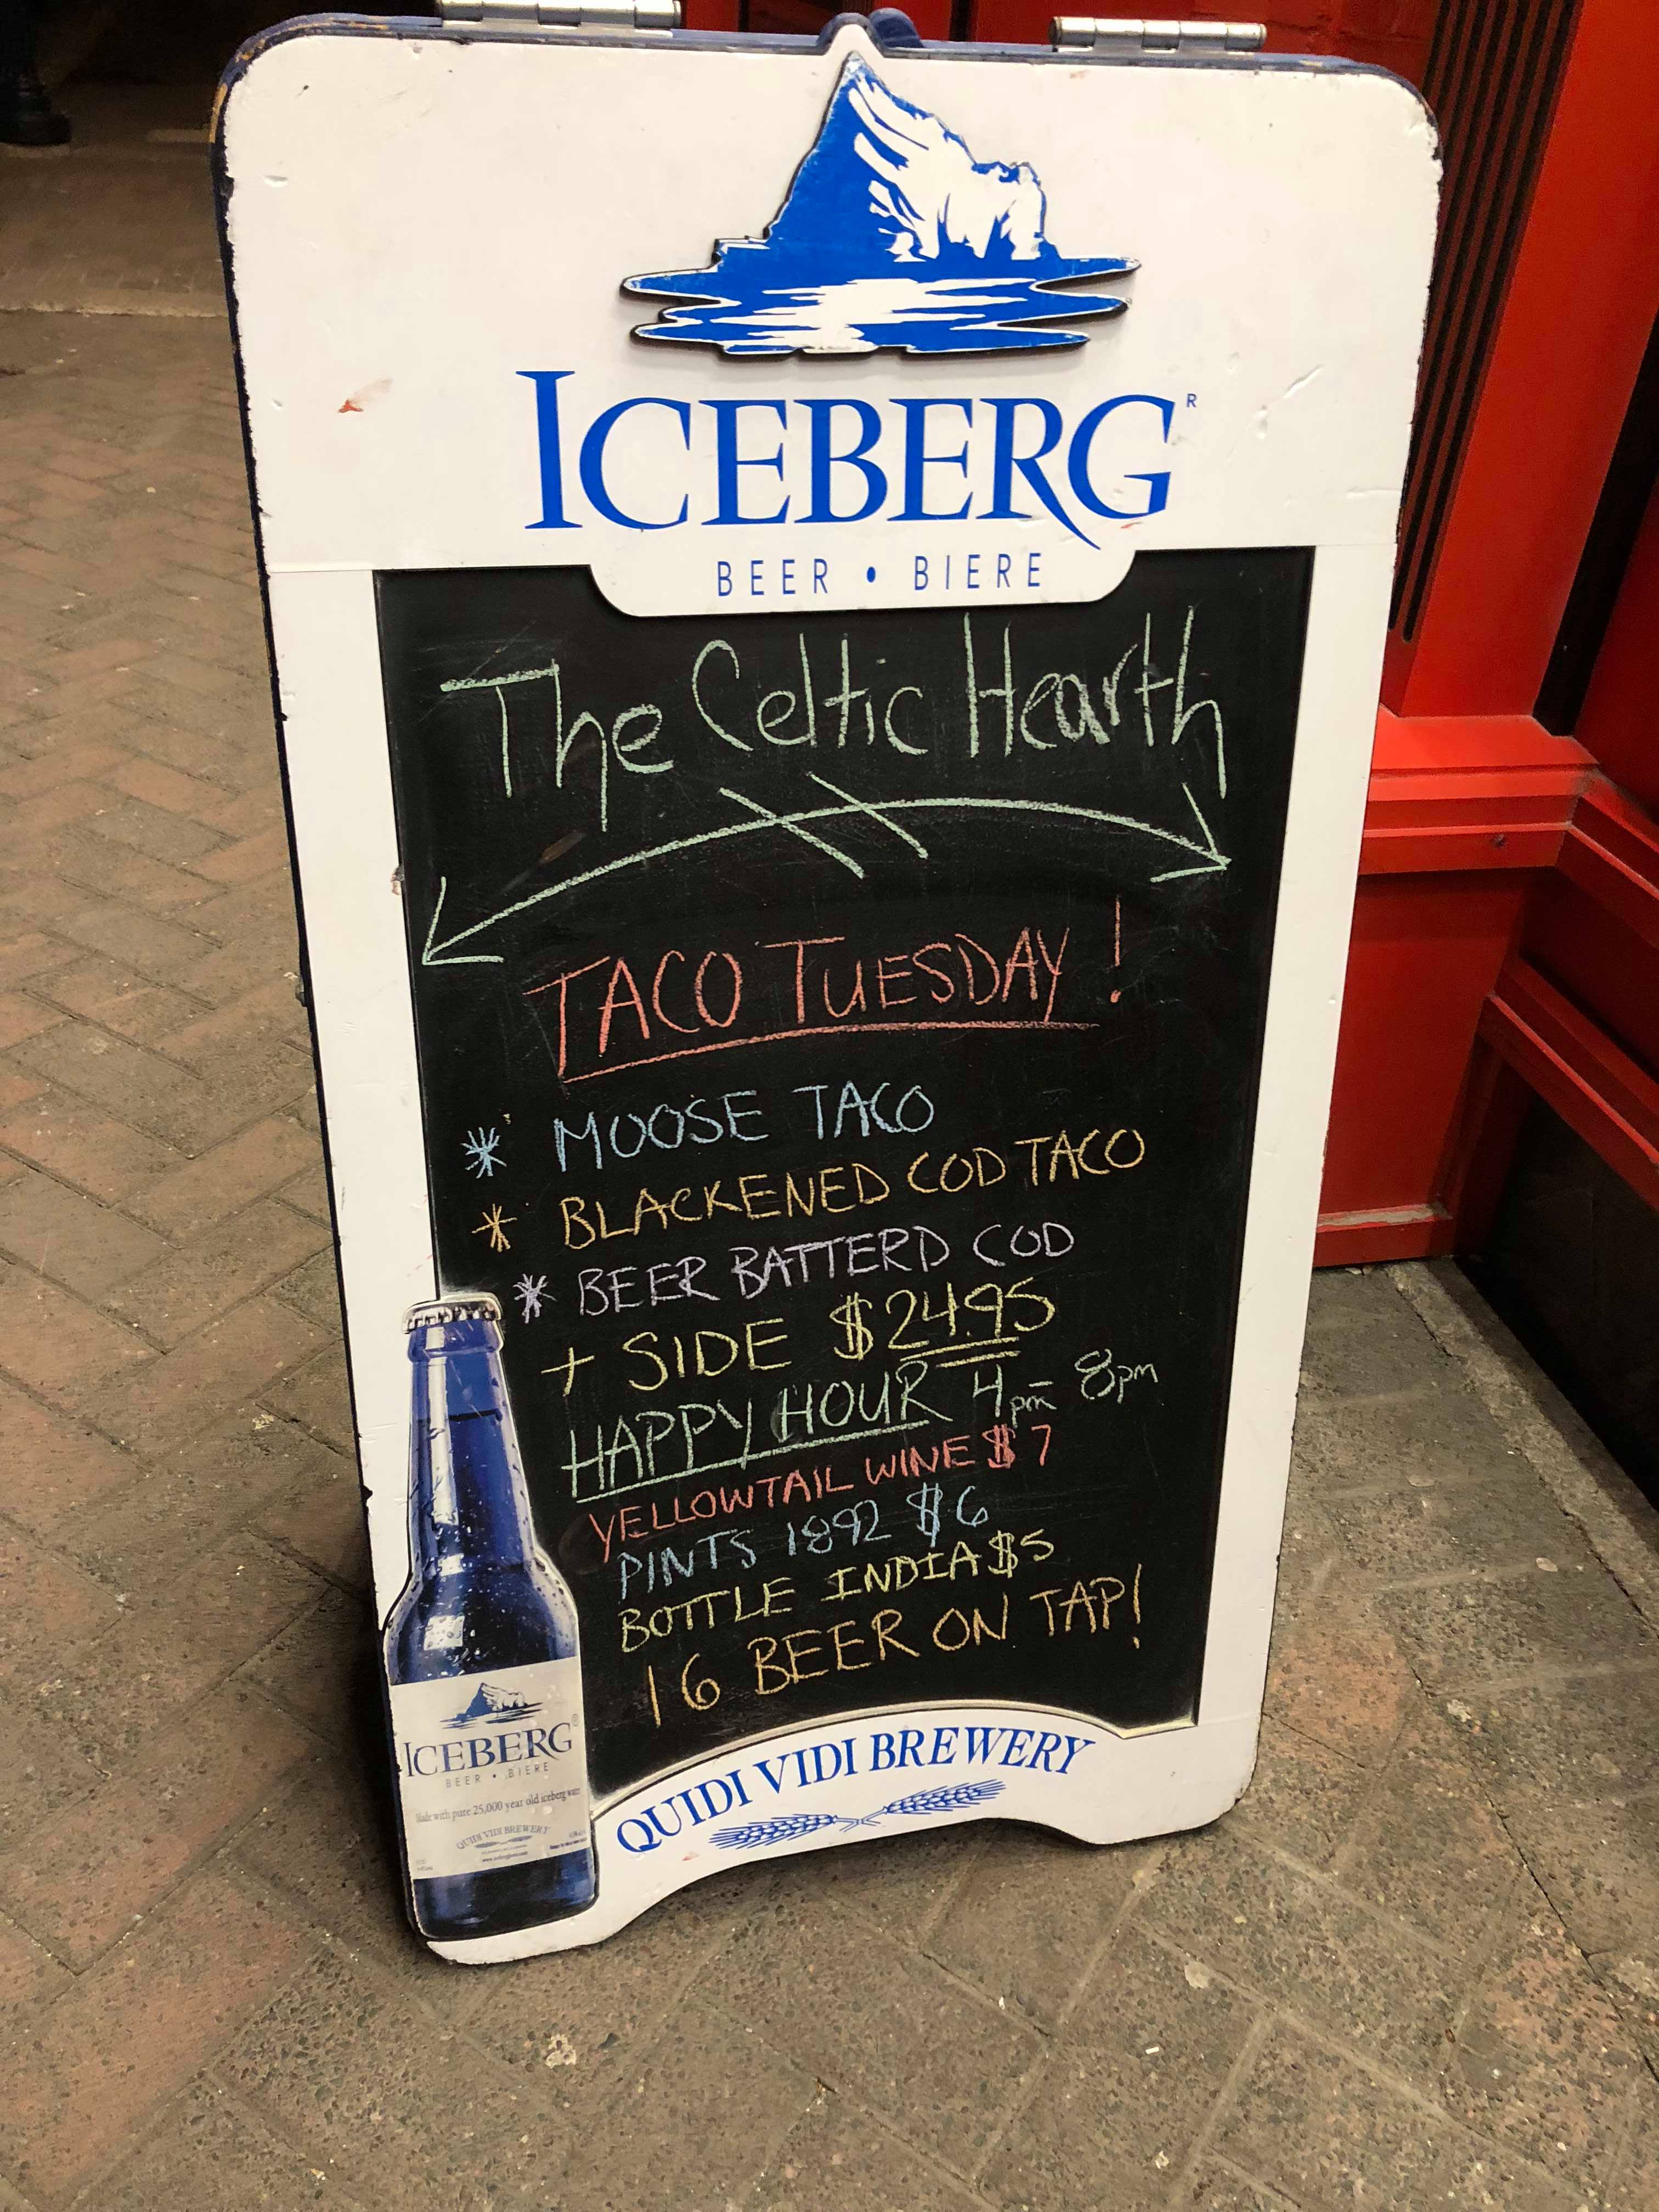 ICEBERG R
BEER • BIERE
The Celtic Hearth
TACO TUESDAY!
* MOOSE TACO
* BLACKENED COD TACO
* BEER BATTERD COD
+ SIDE $24.95
HAPPY HOUR 4pm - 8pm
YELLOWTAIL WINE $7
PINTS 1892 $6
BOTTLE INDIA $5
16 BEER ON TAP!
QUIDI VIDI BREWERY
ICEBERG
BEER • BIERE
Made with pure 25,000 year old iceberg water
QUIDI VIDI BREWERY